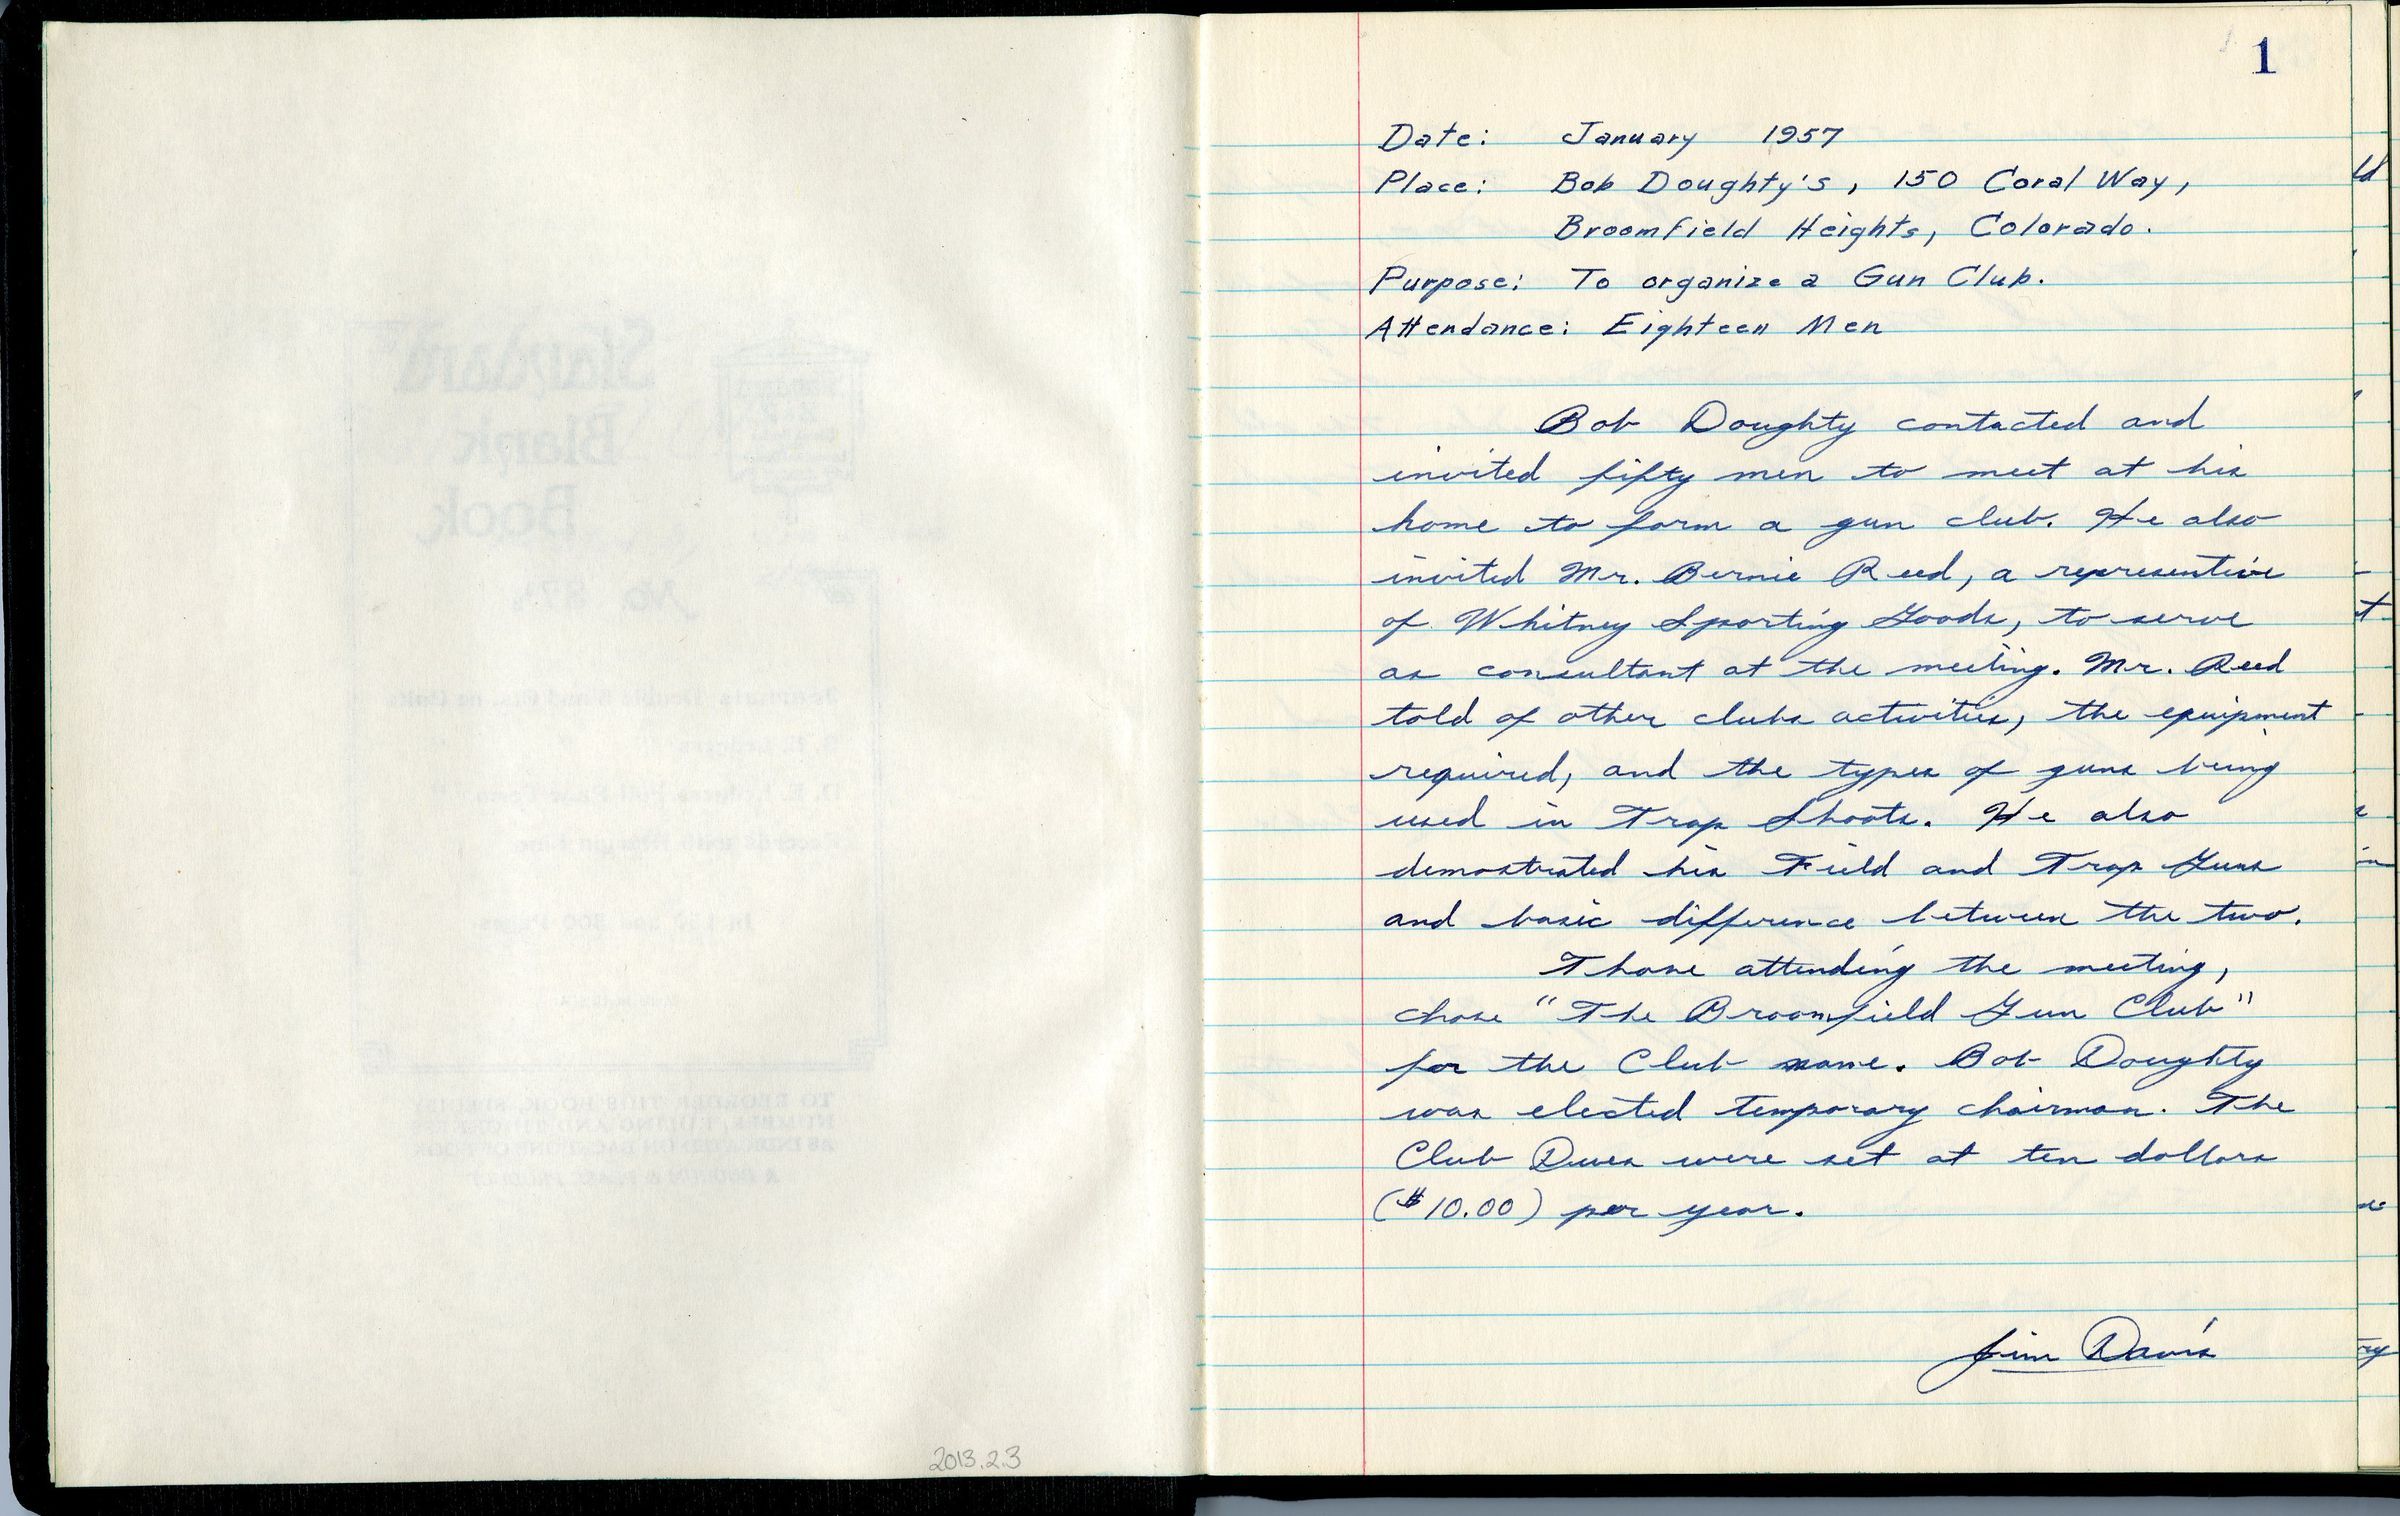 2013.2.3
1
Date: January 1957
Place: Bob Doughty's, 150 Coral Way,
Broomfield Heights, Colorado.
Purpose: To organize a Gun Club.
Attendance: Eighteen Men
Bob Doughty contacted and
invited fifty men to meet at his
home to form a gun club. He also
invited Mr. Bernie Reed, a representive
of Whitney Sporting Goods, to serve
as consultant at the meeting. Mr. Reed
told of other clubs activities, the equipment
required, and the types of guns being
used in Trap Shoots. He also
demostrated his Field and Trap Guns
and basic difference between the two.
Those attending the meeting,
chose "The Broomfield Gun Club"
for the Club name. Bob Doughty
was elected temporary chairman. The
Club Dues were set at ten dollars
($10.00) per year.
Jim Davis